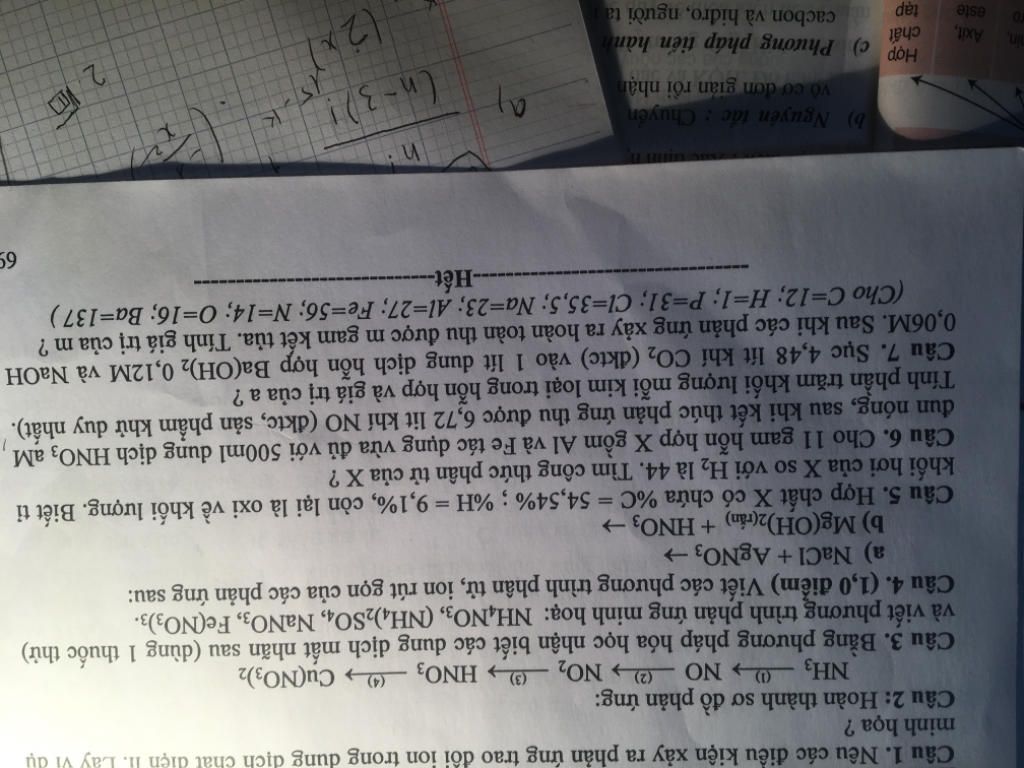 Câu 1. Nêu các điều kiện xảy ra phản ứng trao đổi ion trong dung dịch chất điện li. Lấy ví dụ
minh họa ?
Câu 2: Hoàn thành sơ đồ phản ứng:
NH₃ —(1)→ NO —(2)→ NO₂ —(3)→ HNO₃ —(4)→ Cu(NO₃)₂
Câu 3. Bằng phương pháp hóa học nhận biết các dung dịch mất nhãn sau (dùng 1 thuốc thử)
và viết phương trình phản ứng minh hoạ: NH₄NO₃, (NH₄)₂SO₄, NaNO₃, Fe(NO₃)₃.
Câu 4. (1,0 điểm) Viết các phương trình phân tử, ion rút gọn của các phản ứng sau:
a) NaCl + AgNO₃ →
b) Mg(OH)₂(rắn) + HNO₃ →
Câu 5. Hợp chất X có chứa %C = 54,54% ; %H = 9,1%, còn lại là oxi về khối lượng. Biết tỉ
khối hơi của X so với H₂ là 44. Tìm công thức phân tử của X ?
Câu 6. Cho 11 gam hỗn hợp X gồm Al và Fe tác dụng vừa đủ với 500ml dung dịch HNO₃ aM,
đun nóng, sau khi kết thúc phản ứng thu được 6,72 lít khí NO (đktc, sản phẩm khử duy nhất).
Tính phần trăm khối lượng mỗi kim loại trong hỗn hợp và giá trị của a ?
Câu 7. Sục 4,48 lít khí CO₂ (đktc) vào 1 lít dung dịch hỗn hợp Ba(OH)₂ 0,12M và NaOH
0,06M. Sau khi các phản ứng xảy ra hoàn toàn thu được m gam kết tủa. Tính giá trị của m ?
(Cho C=12; H=1; P=31; Cl=35,5; Na=23; Al=27; Fe=56; N=14; O=16; Ba=137 )
----------Hết----------
69
b) Nguyên tắc : Chuyển
vô cơ đơn giản rồi nhận
c) Phương pháp tiến hành
cacbon và hiđro, người ta
Hợp
chất
tạp
Axit,
este
a)
n!
(n-3)!
2